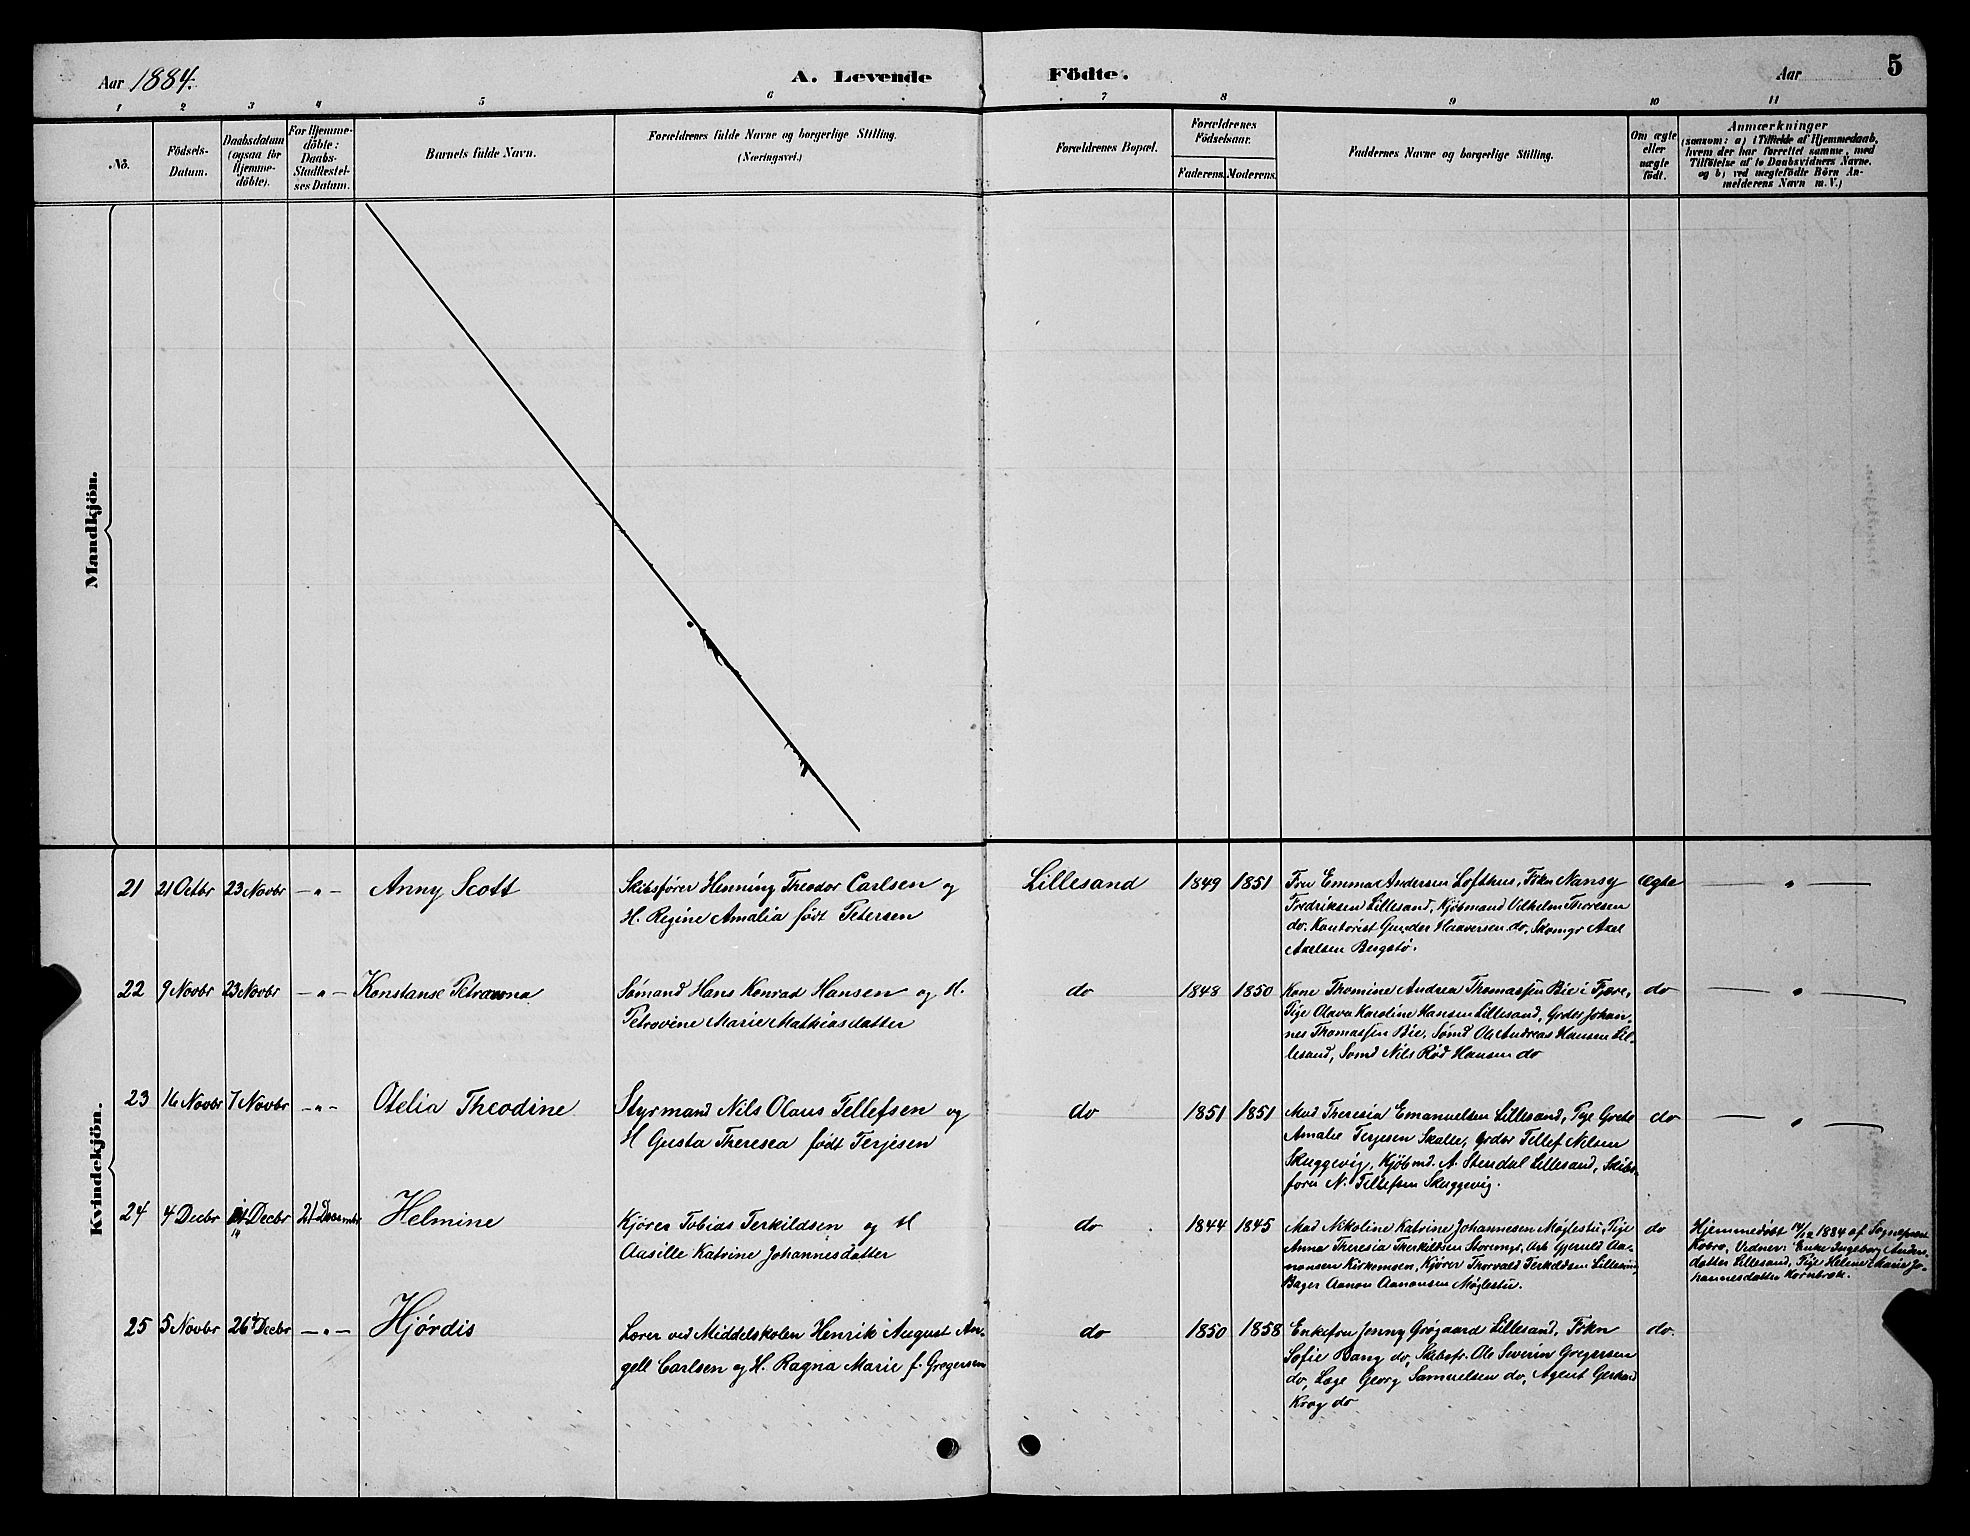 Aar 1884. A. Levende Födte. Aar 5
1 2 3 4 5 6 7 8 9 10 11
No. Födsels-Datum. Daabsdatum (ogsaa for Hjemme-döbte). For Hjemme-döbte: Daabs-Stadfæstel-ses Datum. Barnets fulde Navn. Forældrenes fulde Navne og borgerlige Stilling. (Næringsvei.) Forældrenes Bopæl. Forældrenes Födselsaar. Faderens. Moderens. Faddernes Navne og borgerlige Stilling. Om ægte eller uægte födt. Anmærkninger
(saasom: a) i Tilfælde af Hjemmedaab,
hvem der har forrettet samme, med
Tilföielse af to Daabsvidners Navne.
og b) ved uægtefödte Börn An-
melderens Navn m. V.)
Mandkjön.
Kvindekjön.
21 21 Octbr 23 Novbr -„- Anny Scott
Skibsfører Henning Theodor Carlsen og
H. Regine Amalia født Petersen
Lillesand 1849 1851
Fru Emma Andersen Lofthus, Frkn Nansy
Fredriksen Lillesand, Kjøbmand Vilhelm Thoresen
do, Kontorist Gunder Haaversen do, Skomgr Axel
Axelsen Bergstø.
Ægte — „ —
22 9 Novbr 23 Novbr -„- Konstanse
Sømand Hans Konrad Hansen og H.
Petrovine Marie Mathiasdatter
do 1848 1850
Kone Thomine Andrea Thomassen Bie i Fjære,
Pige Olava Karoline Hansen Lillesand, Grdbr Johan-
nes Thomassen Bie, Sømd Ole Andreas Hansen Lil-
lesand, Sømd Nils Rød Hansen do
do — „ —
23 16 Novbr 7 Novbr -„- Otelia Theodine
Styrmand Nils Olaus Tellefsen og
H Gusta Theresea født Terjesen
do 1851 1851
Mad Theresia Emanuelsen Lillesand, Pige Grete
Amalie Terjesen Skalle, Grdbr Tellef Nilsen
Skuggevig, Kjøbmd. A. Stendal Lillesand, Skibs-
fører N. Tellefsen Skuggevig.
do — „ —
24 4 Decbr 14 Decbr 21 Decembr Helmine
Kjører Tobias Terkildsen og H
Aasille Katrine Johannesdatter
do 1844 1845
Mad Nikoline Katrine Johannesen Møglestu, Pige
Anna Theresia Therkildsen Arb Gjeruld Aa-
nonsen Kirkemoen, Kjører Thorvald Terkildsen Lillesand,
Bager Aanon Aanonsen Møglestu.
do
Hjemmedøbt 14/12 1884 af Sogneprest
Kobro, Vidner: Enke Ingeborg Anders-
datter Lillesand, Pige Helene Marie Jo-
hannesdatter Kornbrek.
25 5 Novbr 26 Decbr -„- Hjørdis
Lærer ved Middelskolen Henrik August An-
gell Carlsen og H. Ragna Marie f. Gregersen
do 1850 1858
Enkefru Jenny Grøgaard Lillesand, Frkn
Sofie Bang do, Skibsfr. Ole Severin Gregersen
do, Læge Georg Samuelsen do, Agent Gerhard
Krog do
do.